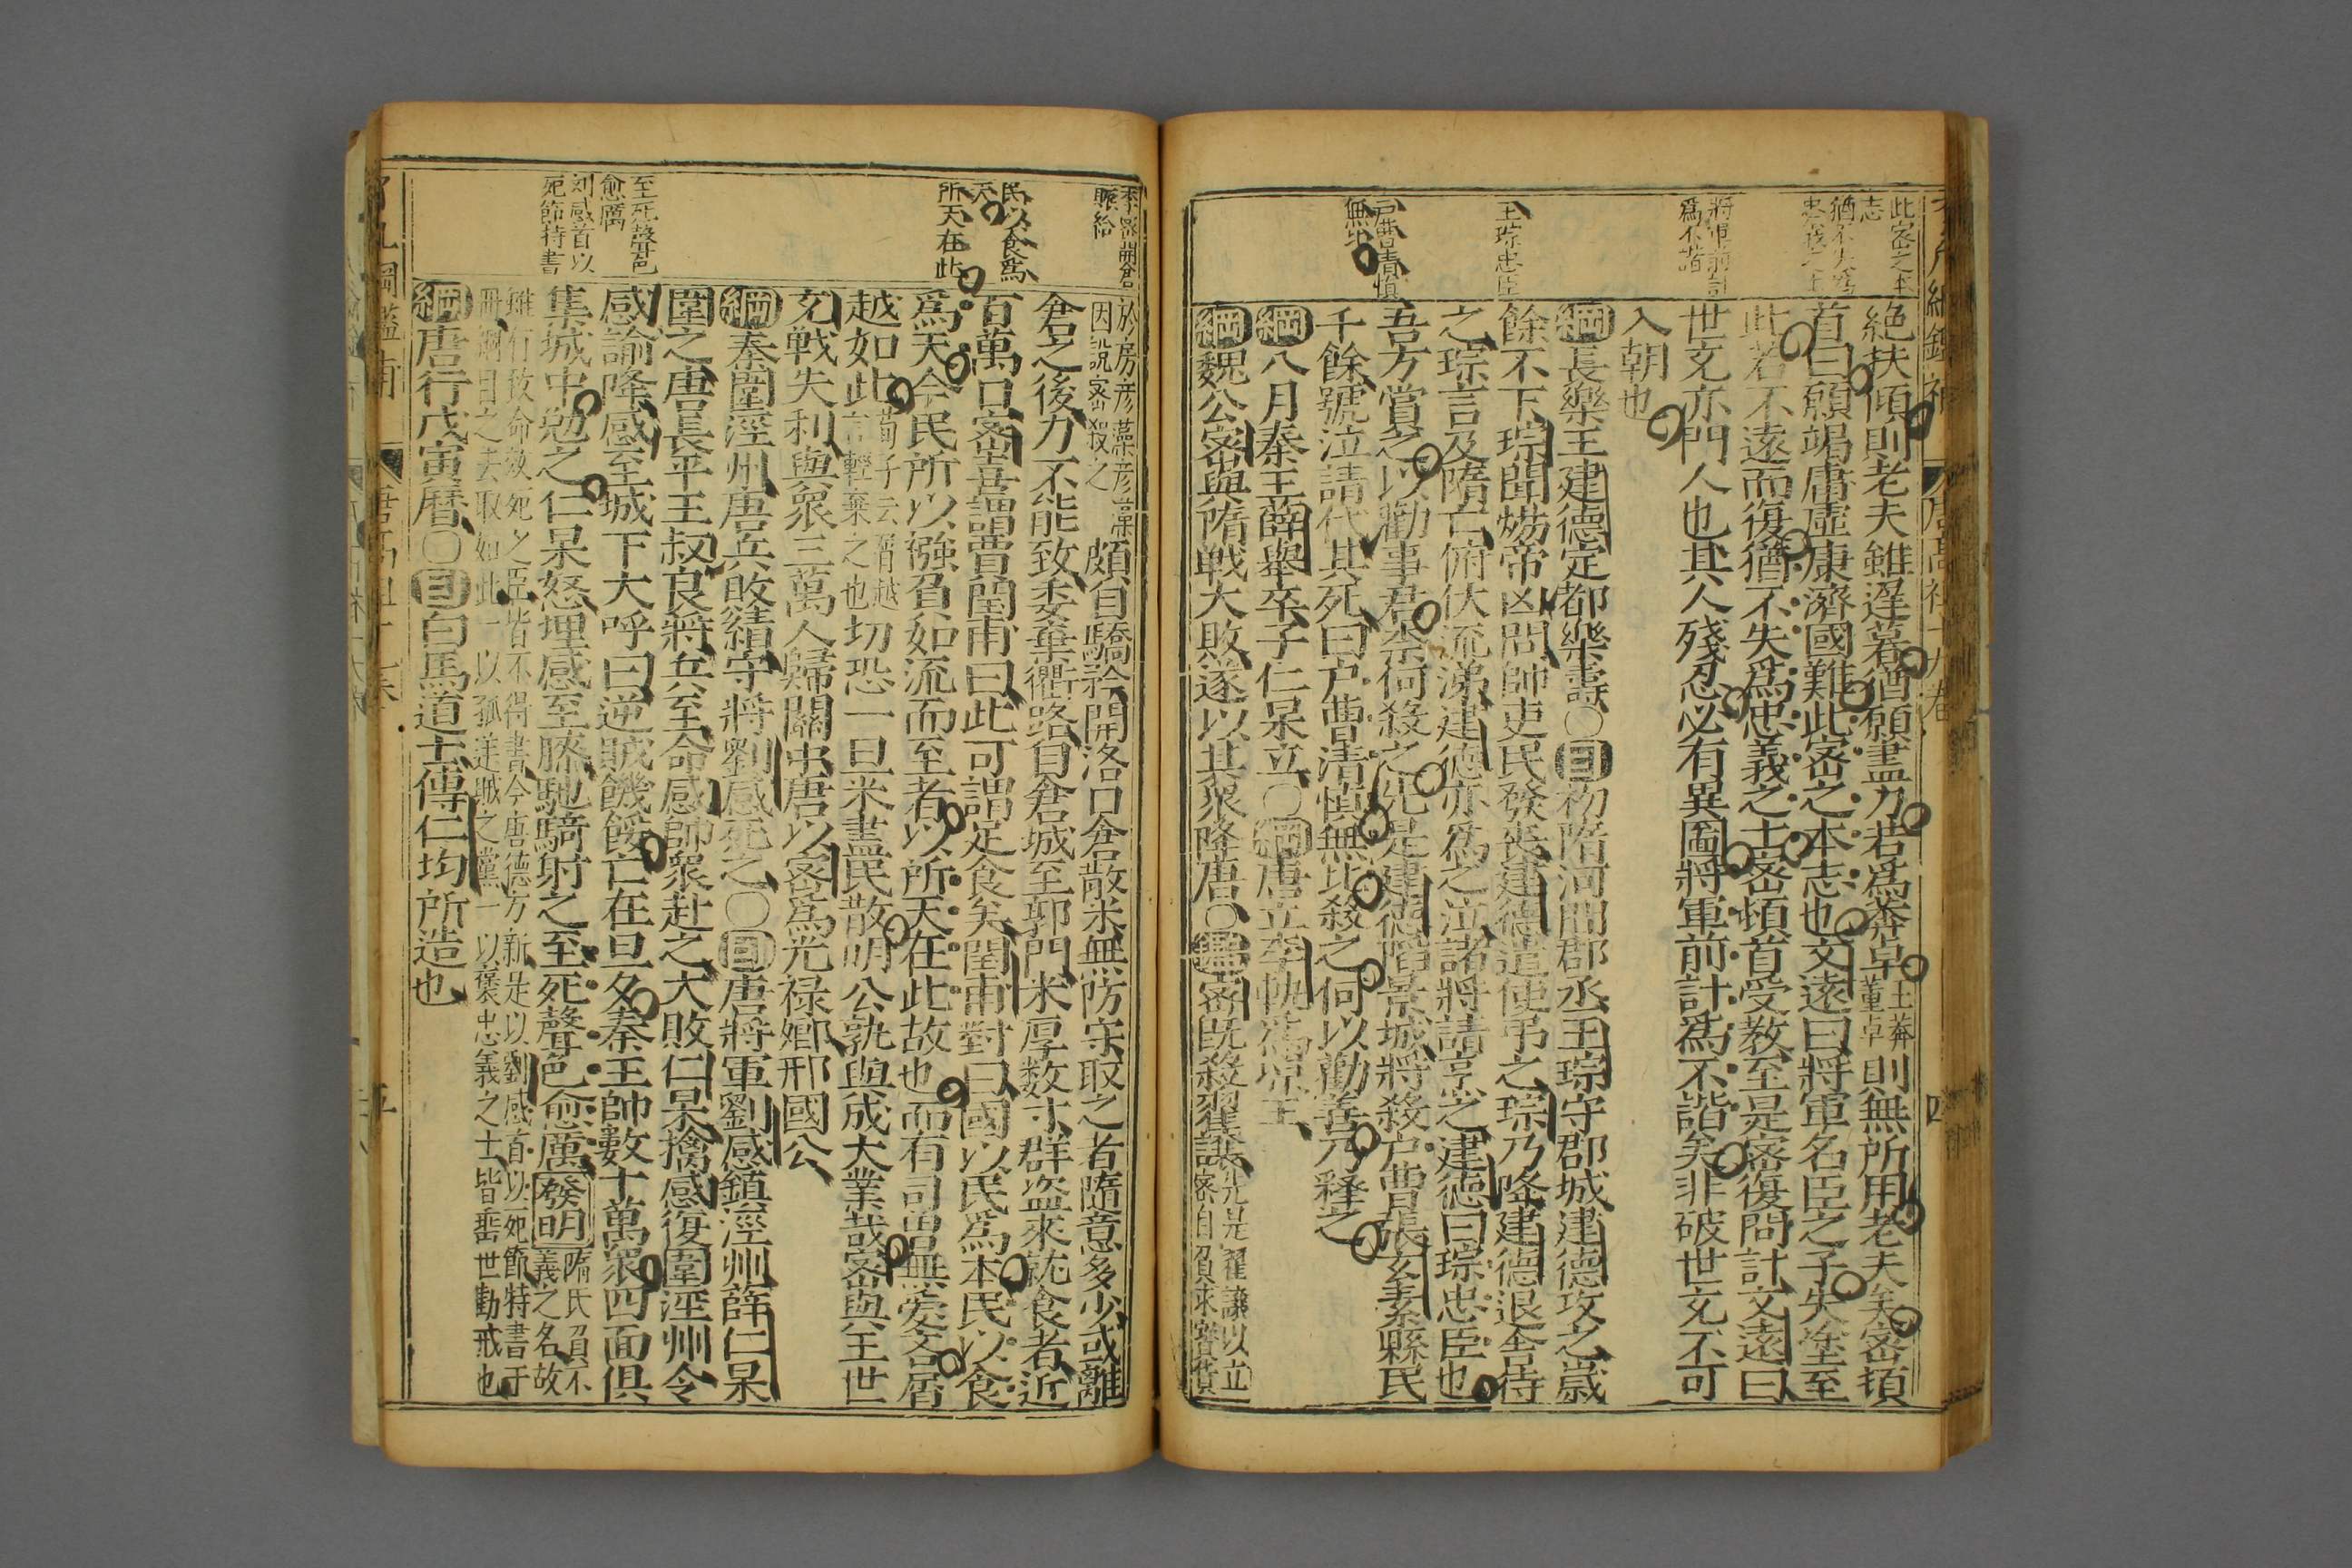 此密之本
志
猶不失爲
忠義之士
將軍前計
爲不諧
王琮忠臣
戶曹清慎
無比
絕扶傾則老夫雖遲暮猶願盡力若爲莽卓王莽董卓則無所用老夫矣密頓
首曰願竭庸虛康濟國難此密之本志也文遠曰將軍名臣之子失塗至
此若不遠而復猶不失爲忠義之士密頓首受敎至是密復問計文遠曰
世充亦門人也其人殘忍必有異圖將軍前計爲不諧矣非破世充不可
入朝也
綱長樂王建德定都樂壽○目初隋河間郡丞王琮守郡城建德攻之歲
餘不下琮聞煬帝凶問帥吏民發喪建德遣使弔之琮乃降建德退舍待
之琮言及隋亡俯伏流涕建德亦爲之泣諸將請烹之建德曰琮忠臣也
吾方賞之以勸事君柰何殺之先是建德陷景城將殺戶曹張玄素縣民
千餘號泣請代其死曰戶曹清慎無比殺之何以勸善乃釋之
綱八月秦王薛舉卒子仁杲立○綱唐立李軌爲涼王
綱魏公密與隋戰大敗遂以其衆降唐○鑑密旣殺翟讓先是翟讓以立密自負求寶貨
李密開倉
賑給
民以食爲
天
所天在此
至死聲色
愈厲
刘感首以
死節特書
於房彥藻彥藻因說密殺之頗自驕矜開洛口倉散米無防守取之者隨意多少或離
倉之後力不能致委棄衢路自倉城至郭門米厚数寸群盜來就食者近
百萬口密喜謂賈閏甫曰此可謂足食矣閏甫對曰國以民爲本民以食
爲天今民所以襁負如流而至者以所天在此故也而有司曾無愛吝屑
越如此荀子云屑越言輕棄之也切恐一旦米盡民散明公孰與成大業哉密與王世
充戰失利與衆三萬人歸關中唐以密爲光祿卿邢國公
綱秦圍涇州唐兵敗績守將劉感死之○目唐將軍劉感鎮涇州薛仁杲
圍之唐長平王叔良將兵至命感帥衆赴之大敗仁杲擒感復圍涇州令
感諭降感至城下大呼曰逆賊饑餒亡在旦夕秦王帥數十萬衆四面俱
集城中勉之仁杲怒埋感至膝馳騎射之至死聲色愈厲發明隋氏習不義之名故
雖有致命效死之臣皆不得書今唐德方新是以劉感首以死節特書于
冊綱目之去取如此一以孤逆賊之黨一以褒忠義之士皆垂世勸戒也
綱唐行戊寅曆○目白馬道士傳仁均所造也